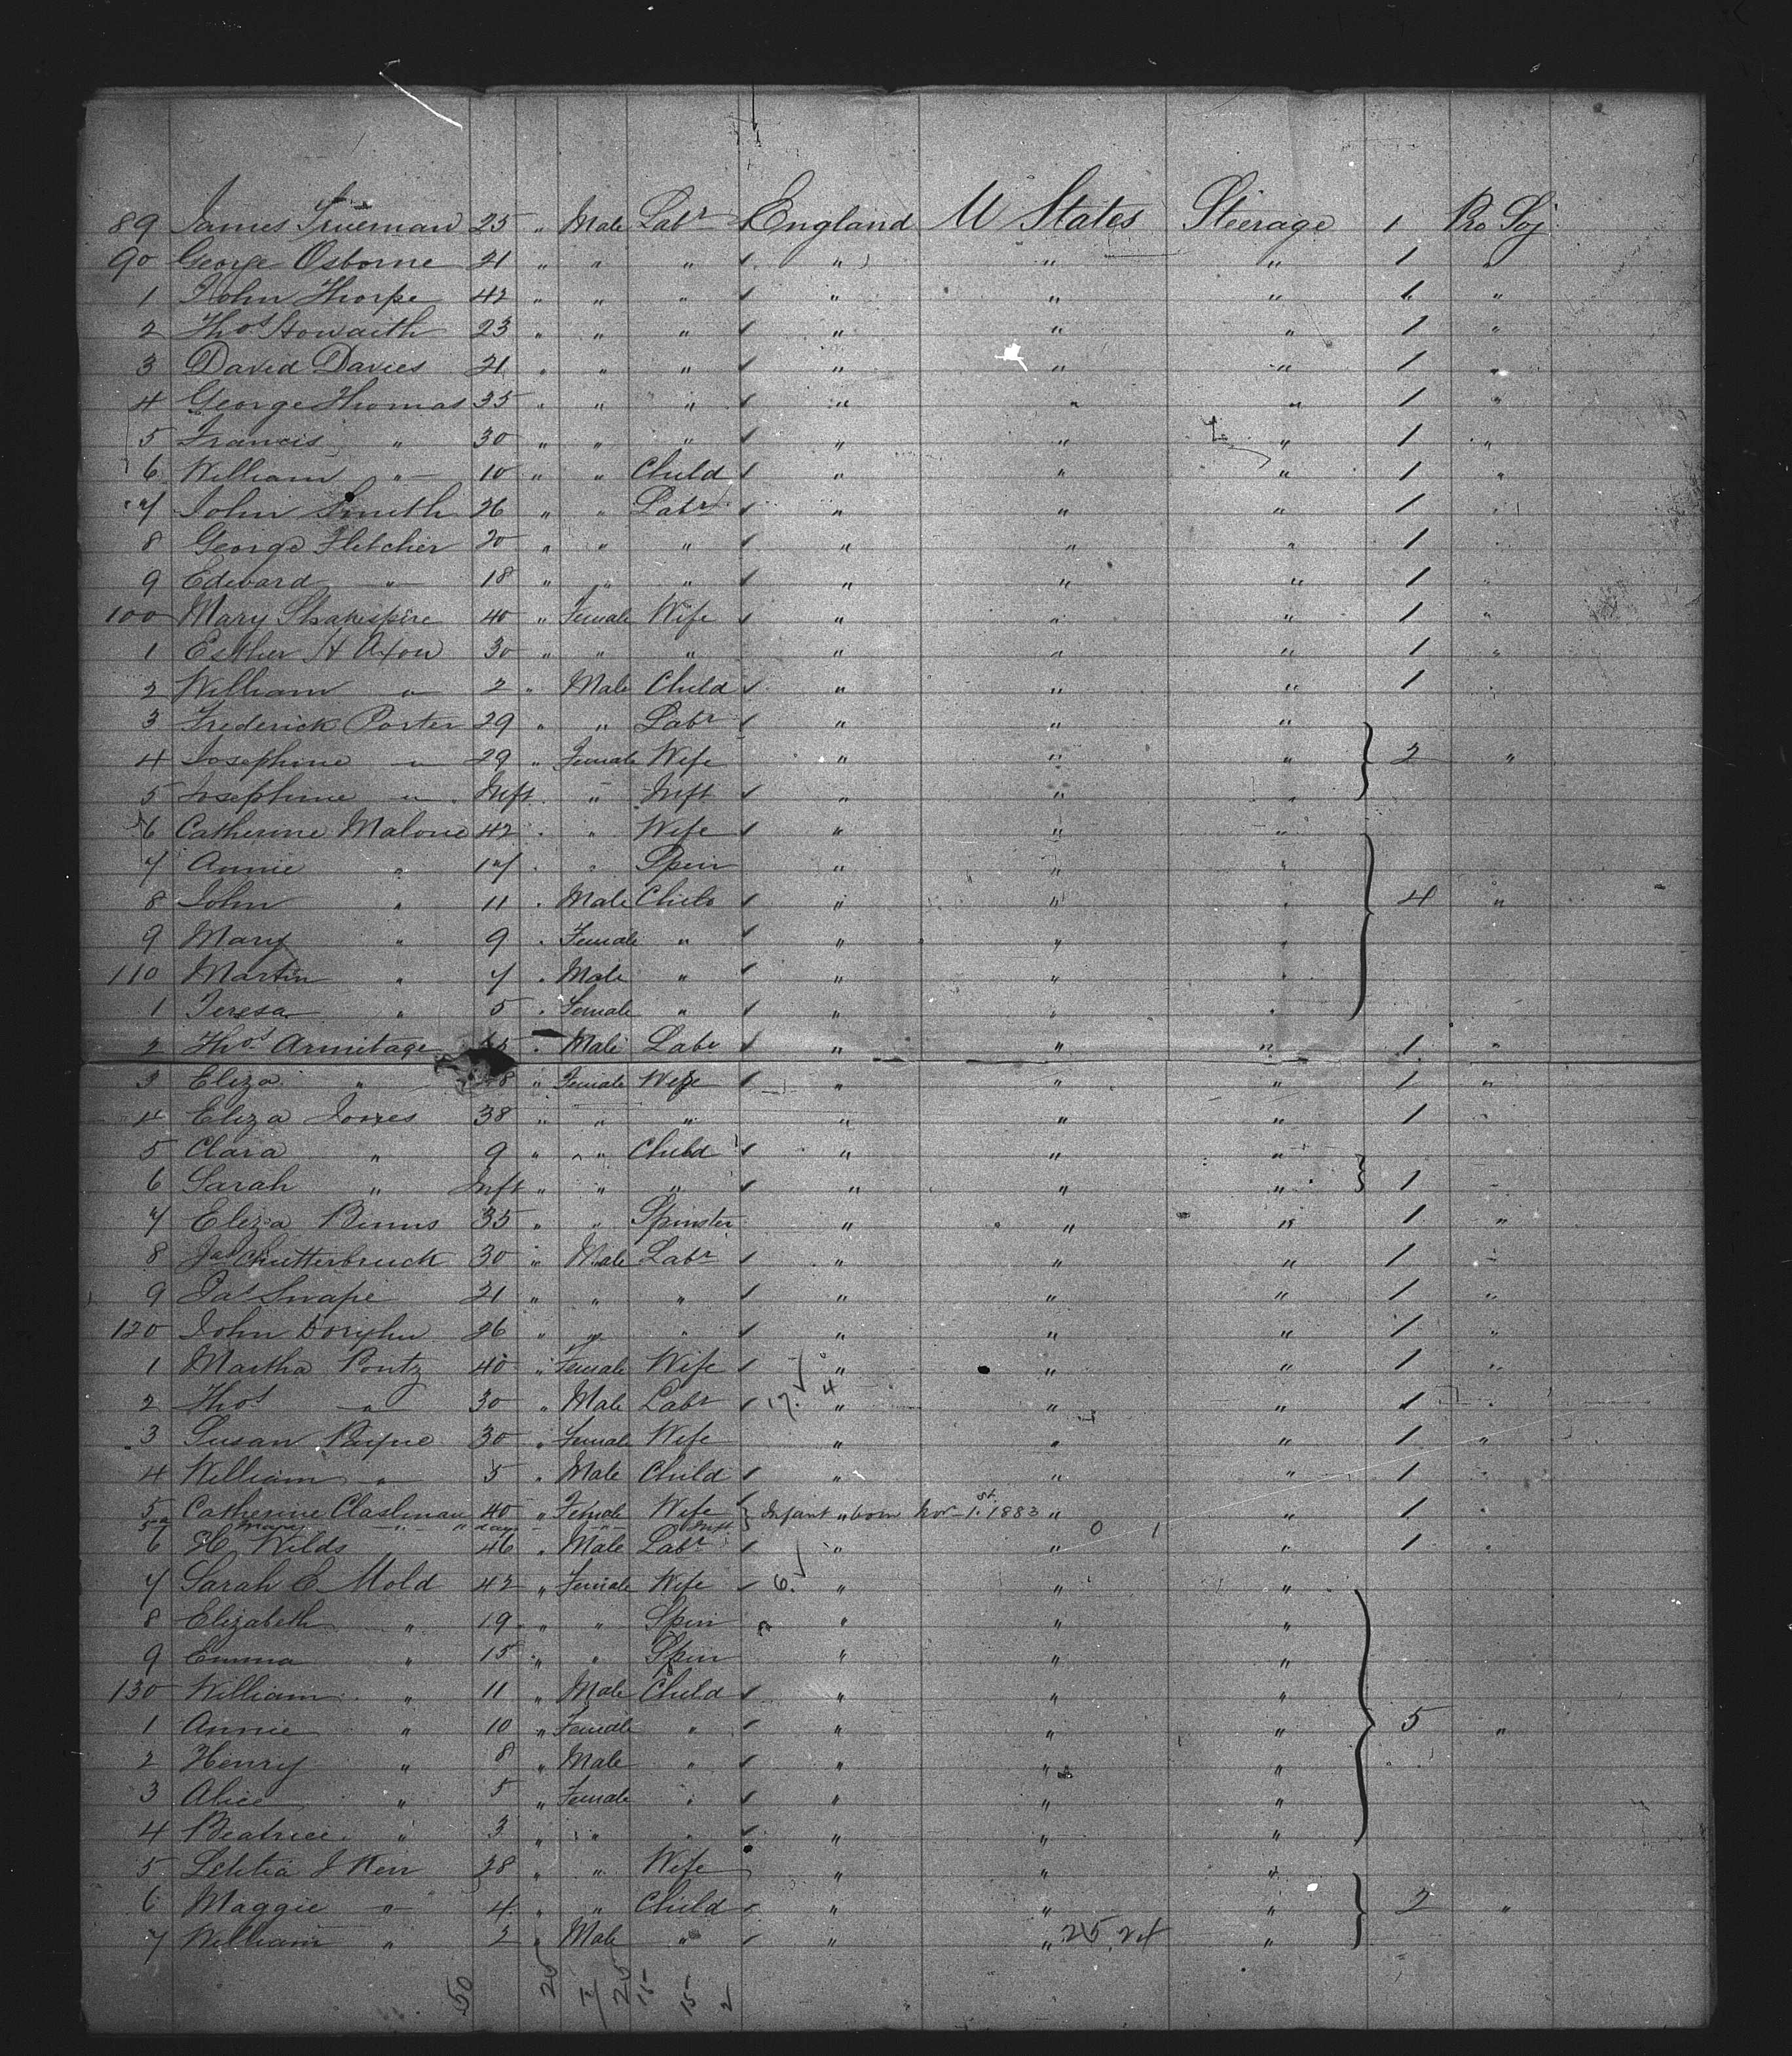 89 James Trueman 25 " Male Labr England U States Steerage 1 Pro Soj
90 George Osborne 21 " " " " " " 1 "
1 John Thorpe 42 " " " " " " 1 "
2 Thos Howarth 23 " " " " " " 1 "
3 David Davies 21 " " " " " " 1 "
4 George Thomas 35 " " " " " " 1 "
5 Francis " 30 " " " " " " 1 "
6 William " 10 " " Child " " " 1 "
7 John Smith 26 " " Labr " " " 1 "
8 George Fletcher 20 " " " " " " 1 "
9 Edward " 18 " " " " " " 1 "
100 Mary Shakespire 40 " Female Wife " " " 1 "
1 Esther H Axon 30 " " " " " " 1 "
2 William " 2 " Male Child " " " 1 "
3 Frederick Porter 29 " " Labr " " "
4 Josephine " 29 " Female Wife " " " 2 "
5 Josephine " Inft " " Inft " " "
6 Catherine Malone 42 " " Wife " " "
7 Annie " 17 " " Spin " " "
8 John " 11 " Male Child " " " 4 "
9 Mary " 9 " Female " " " "
110 Martin " 7 " Male " " " "
1 Teresa " 5 " Female " " " "
2 Thos Armitage " Male Labr " " " 1 "
3 Eliza " " Female Wife " " " 1 "
4 Eliza Jones 38 " " " " " " 1 "
5 Clara " 9 " " Child " " "
6 Sarah " Inft " " " " " " 1 "
7 Eliza Binns 35 " " Spinster " " " 1 "
8 Jas Chutterbruck 30 " Male Labr " " " 1 "
9 Jas Swape 21 " " " " " " 1 "
120 John 26 " " " " " " 1 "
1 Martha Pontz 40 " Female Wife " " " 1 "
2 Thos " 30 " Male Labr 17. 4 " " " 1 "
3 Susan Payne 30 " Female Wife " " " 1 "
4 William " 5 " Male Child " " " 1 "
5 Catherine Clashman 40 " Female Wife Infant " born Nov 1st 1883 " " 1 "
5a " " days " Inft 0 1
6 H. Wilds 46 " Male Labr " " " 1 "
7 Sarah C Mold 42 " Female Wife 6. " " "
8 Elizabeth " 19 " " Spin " " "
9 Emma " 15 " " Spin " " "
130 William " 11 " Male Child " " "
1 Annie " 10 " Female " " " " 5 "
2 Henry " 8 " Male " " " "
3 Alice " 5 " Female " " " "
4 Beatrice " 3 " " " " " "
5 Letitia J Kerr 28 " " Wife " " "
6 Maggie " 4 " " Child " " " 2 "
7 William " 2 " Male " " " 25.24 "
50 25 25 15 15 2